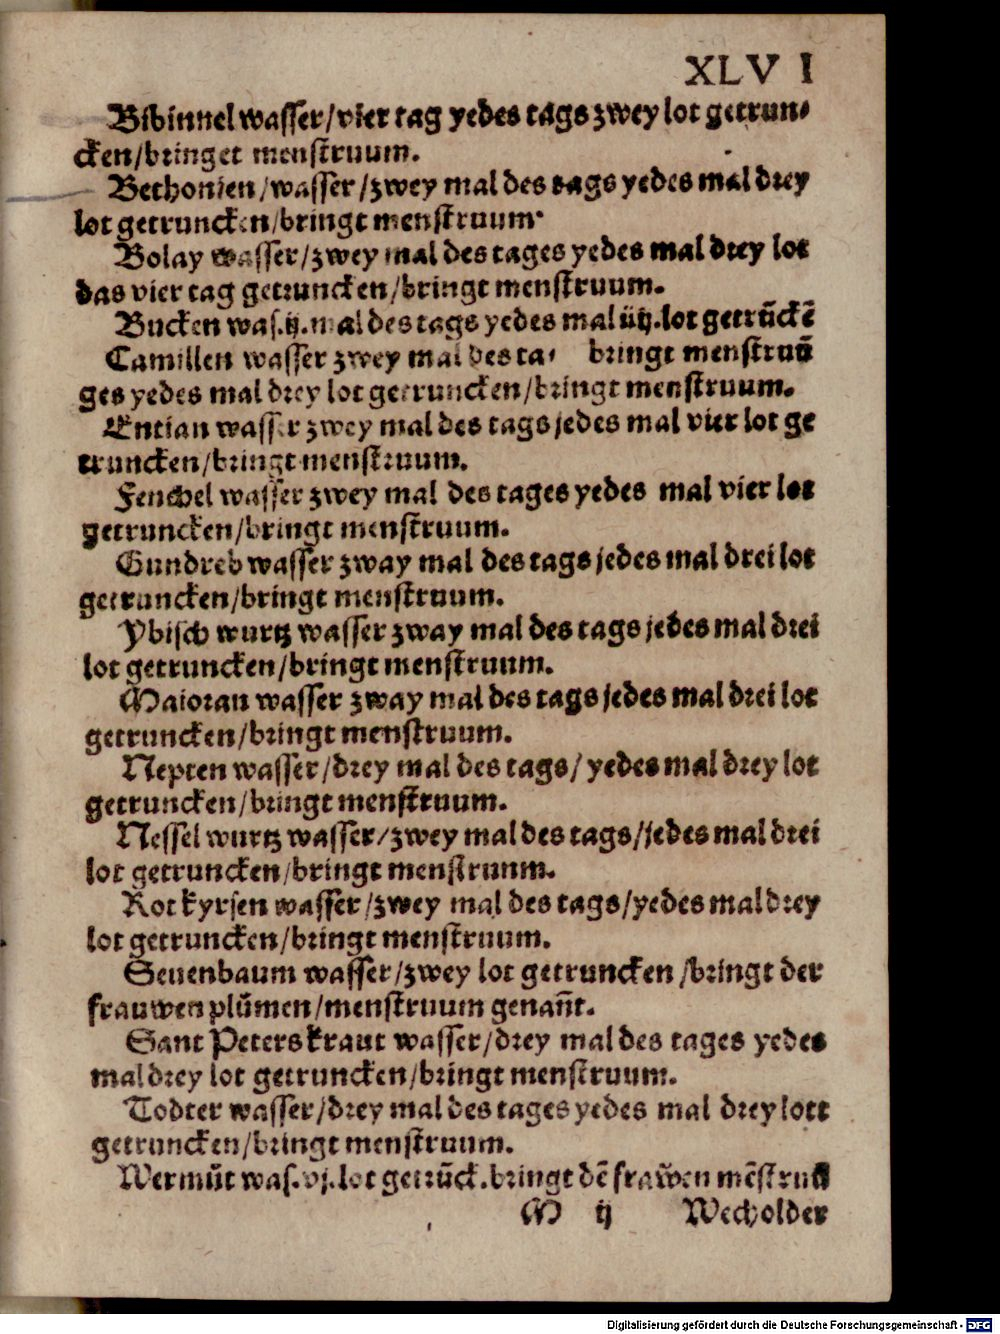 XLVI
Bibinnel wasser/vier tag yedes tags zwey lot getrun⸗
cken/bringet menstruum.
Bethonien/wasser/zwey mal des tags yedes mal drey
lot getruncken/bringt menstruum.
Bolay wasser/zwey mal des tages yedes mal drey lot
das vier tag getruncken/bringt menstruum.
Bucken was.ij.mal des tags yedes mal iiij.lot getrūckē
Camillen wasser zwey mal des ta⸗ bringt menstruū
ges yedes mal drey lot getruncken/bringt menstruum.
Entian wasser zwey mal des tags jedes mal vier lot ge
truncken/bringt menstruum.
Fenchel wasser zwey mal des tages yedes mal vier lot
getruncken/bringt menstruum.
Gundreb wasser zway mal des tags jedes mal drei lot
getruncken/bringt menstruum.
Ybisch wurtz wasser zway mal des tags jedes mal drei
lot getruncken/bringt menstruum.
Maioran wasser zway mal des tags jedes mal drei lot
getruncken/bringt menstruum.
Nepten wasser/drey mal des tags/ yedes mal drey lot
getruncken/bringt menstruum.
Nessel wurtz wasser/zwey mal des tags/jedes mal drei
lot getruncken/bringt menstruum.
Rot kyrsen wasser/zwey mal des tags/yedes mal drey
lot getruncken/bringt menstruum.
Seuenbaum wasser/zwey lot getruncken/bringt der
frauwen plůmen/menstruum genañt.
Sant Peters kraut wasser/drey mal des tages yedes
mal drey lot getruncken/bringt menstruum.
Todter wasser/drey mal des tages yedes mal drey lott
getruncken/bringt menstruum.
Wermůt was.vj.lot getrūck.bringt dē frawen mēstruū
M ij Wecholder
Digitalisierung gefördert durch die Deutsche Forschungsgemeinschaft - DFG